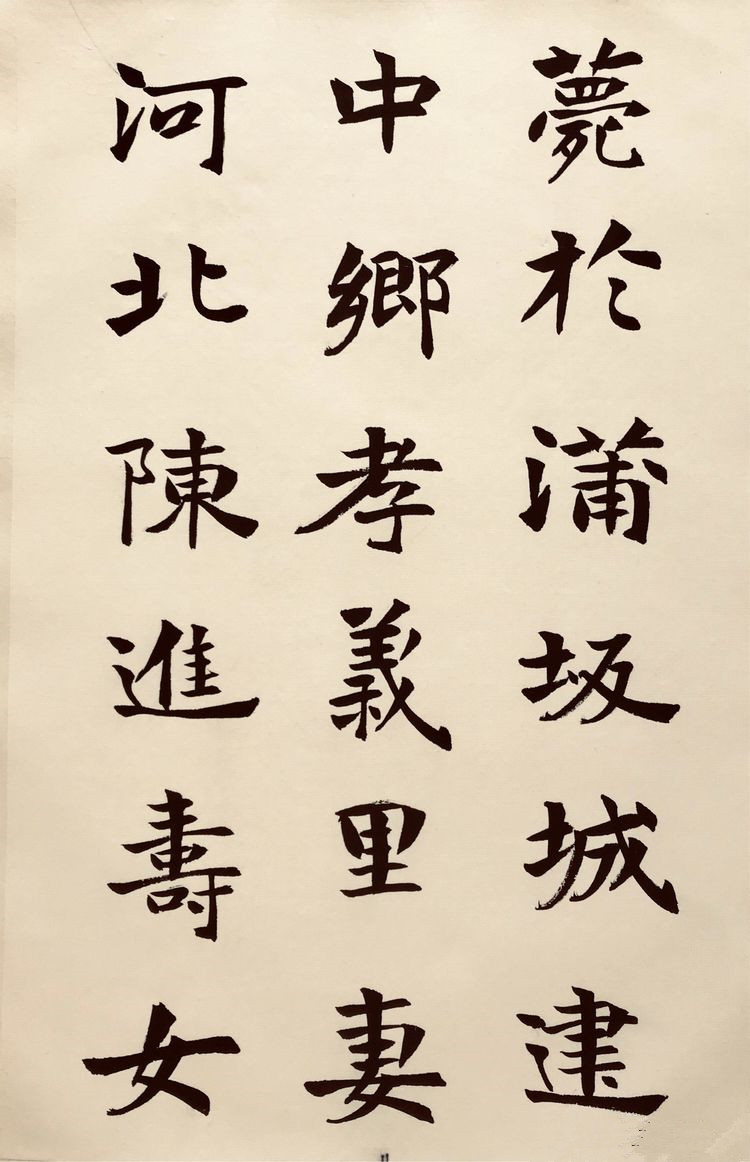 薨於蒲坂城建
中鄉孝義里妻
河北陳進壽女